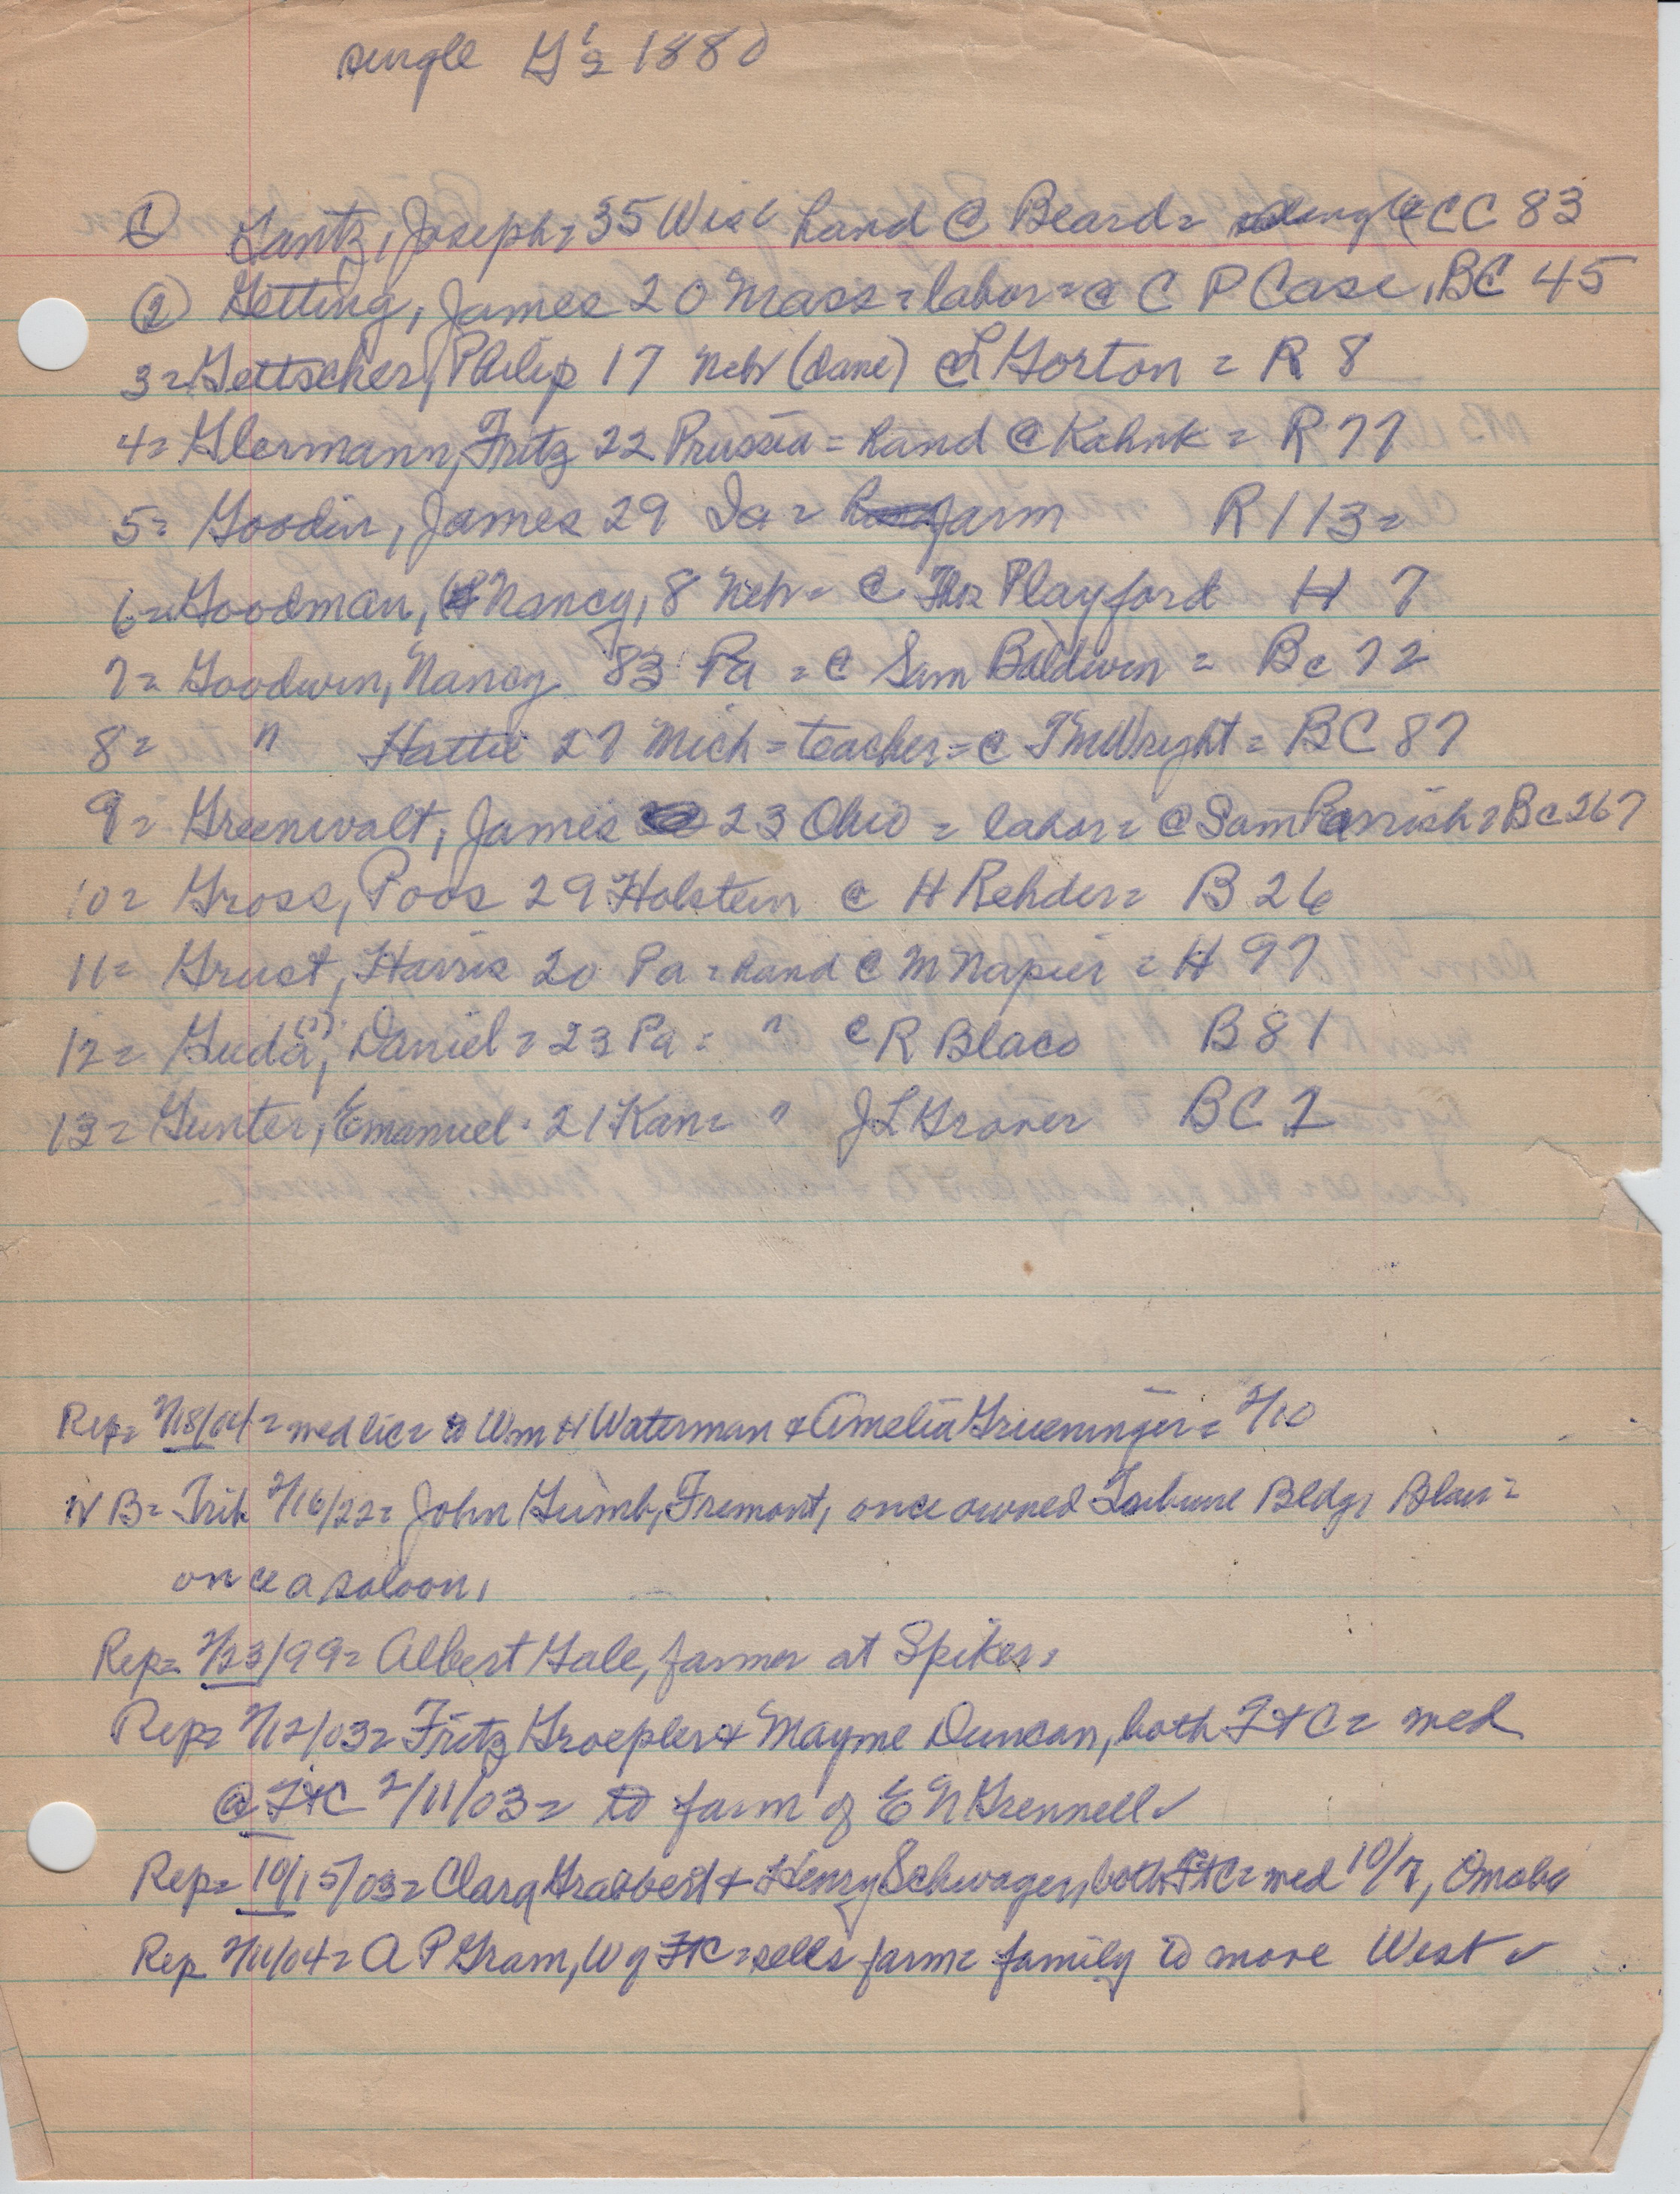 single G's 1880
① Gantz, Joseph = 35 Wisc hand @ Beard = single CC 83
② Getting, James 20 Mass = labor = @ C P Case, BC 45
3 = Gettscher, Philip 17 Neb (dane) @ L Gorton = R 8
4 = Glermann, Fritz 22 Prussia = hand @ Kahnk = R 77
5 = Goodin, James 29 Ia = farm R 113 =
6 = Goodman, Nancy, 8 Neb = @ Thos Playford H 7
7 = Goodwin, Nancy 83 Pa = @ Sam Baldwin = Bc 72
8 = " Hattie 27 Mich = teacher = @ TM Wright = BC 87
9 = Greenwalt, James 23 Ohio = labor = @ Sam Parrish = Bc 267
10 = Gross, Poos 29 Holstein @ H Rehder = B 26
11 = Grust, Harris 20 Pa = hand @ M Napier = H 97
12 = Guda(?), Daniel = 23 Pa = " @ R Blaco B 81
13 = Gunter, Emanuel = 21 Kan = " J L Grover BC 2
Rep = 2/18/04 = wed lic = to Wm H Waterman & Amelia Grueninger = 2/10
N B = Trib 2/16/22 = John Gumb, Fremont, once owned Tribune Bldg, Blair =
once a saloon,
Rep = 2/23/99 = Albert Gale, farmer at Spiker,
Rep = 2/12/03 = Fritz Groepler & Mayme Duncan, both Ft C = wed
@ Ft C 2/11/03 = to farm of E N Grennell ✓
Rep = 10/15/03 = Clara Grabbert & Henry Schwager, both Ft C = wed 10/7, Omaha
Rep 2/11/04 = A P Gram, W of Ft C = sells farm = family to move West ✓